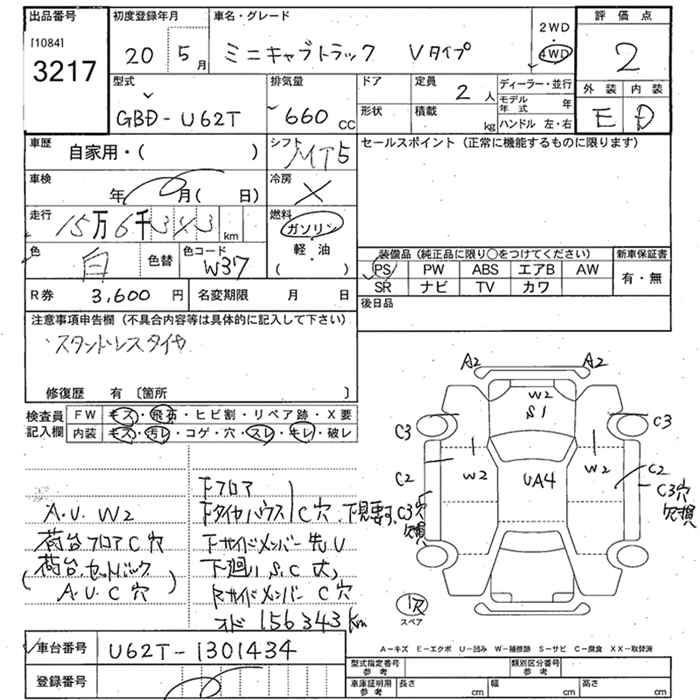 出品番号 初度登録年月 車名・グレード 評価点
[1084] 3217 20 5月 ミニキャブトラック Vタイプ 2WD・4WD 2
型式 排気量 ドア 定員 2人 ディーラー・並行 外装 内装
GBD-U62T 660cc 形状 積載 kg モデル年式 年 ハンドル 左・右 E D
車歴 自家用・( ) シフト MT5 セールスポイント(正常に機能するものに限ります)
車検 年 月( 日) 冷房 ×
走行 15万6千343km 燃料 ガソリン・軽・油 ( )
色 白 色替 色コード W37 装備品(純正品に限り○をつけてください) 新車保証書
PS PW ABS エアB AW 有・無
R券 3,600円 名変期限 月 日 SR ナビ TV カワ
後日品
注意事項申告欄(不具合内容等は具体的に記入して下さい)
スタットレスタイヤ
修復歴 有〔箇所 〕
検査員記入欄 FW キズ・飛石・ヒビ割・リペア跡・X要
内装 キズ・汚レ・コゲ・穴・スレ・キレ・破レ
A2 A2
W2
S1
C3 C3
W2 UA4 W2
C2 C2
C3穴欠損 C3穴欠損
下フロア
A.U.W2 下タイヤハウス C穴.下見要す.
荷台フロアC穴 下サイドメンバー先U
(荷台.セットバック 下廻りS.C大
A.U.C穴) サイドメンバーC穴
156343km
1穴
スペア
車台番号 U62T-1301434
A-キズ E-エクボ U-凹み W-補修跡 S-サビ C-腐食 XX-取替済
登録番号 型式指定番号 参考 類別区分番号 参考
車庫証明用 参考 長さ cm 幅 cm 高さ cm